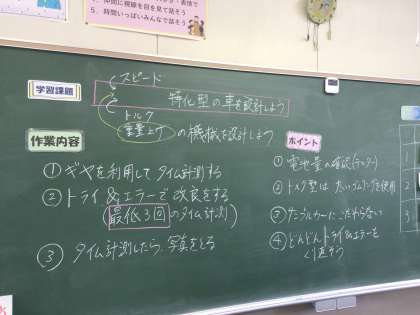 4. 仲間に視線を目を見て話そう
5. 時間いっぱいみんなで話そう
学習課題
スピード
特化型の車を設計しよう
トルク
重量上げ の機械を設計しよう
作業内容
①ギヤを利用してタイム計測する
②トライ&エラーで改良をする
(最低3回のタイム計測)
③タイム計測したら、写真をとる
ポイント
①電池量の確認(テスター)
②トルク型は たいゴムリングを使用
③サンプルカーにこだわらない
④どんどんトライ&エラーを
くり返そう
2
3